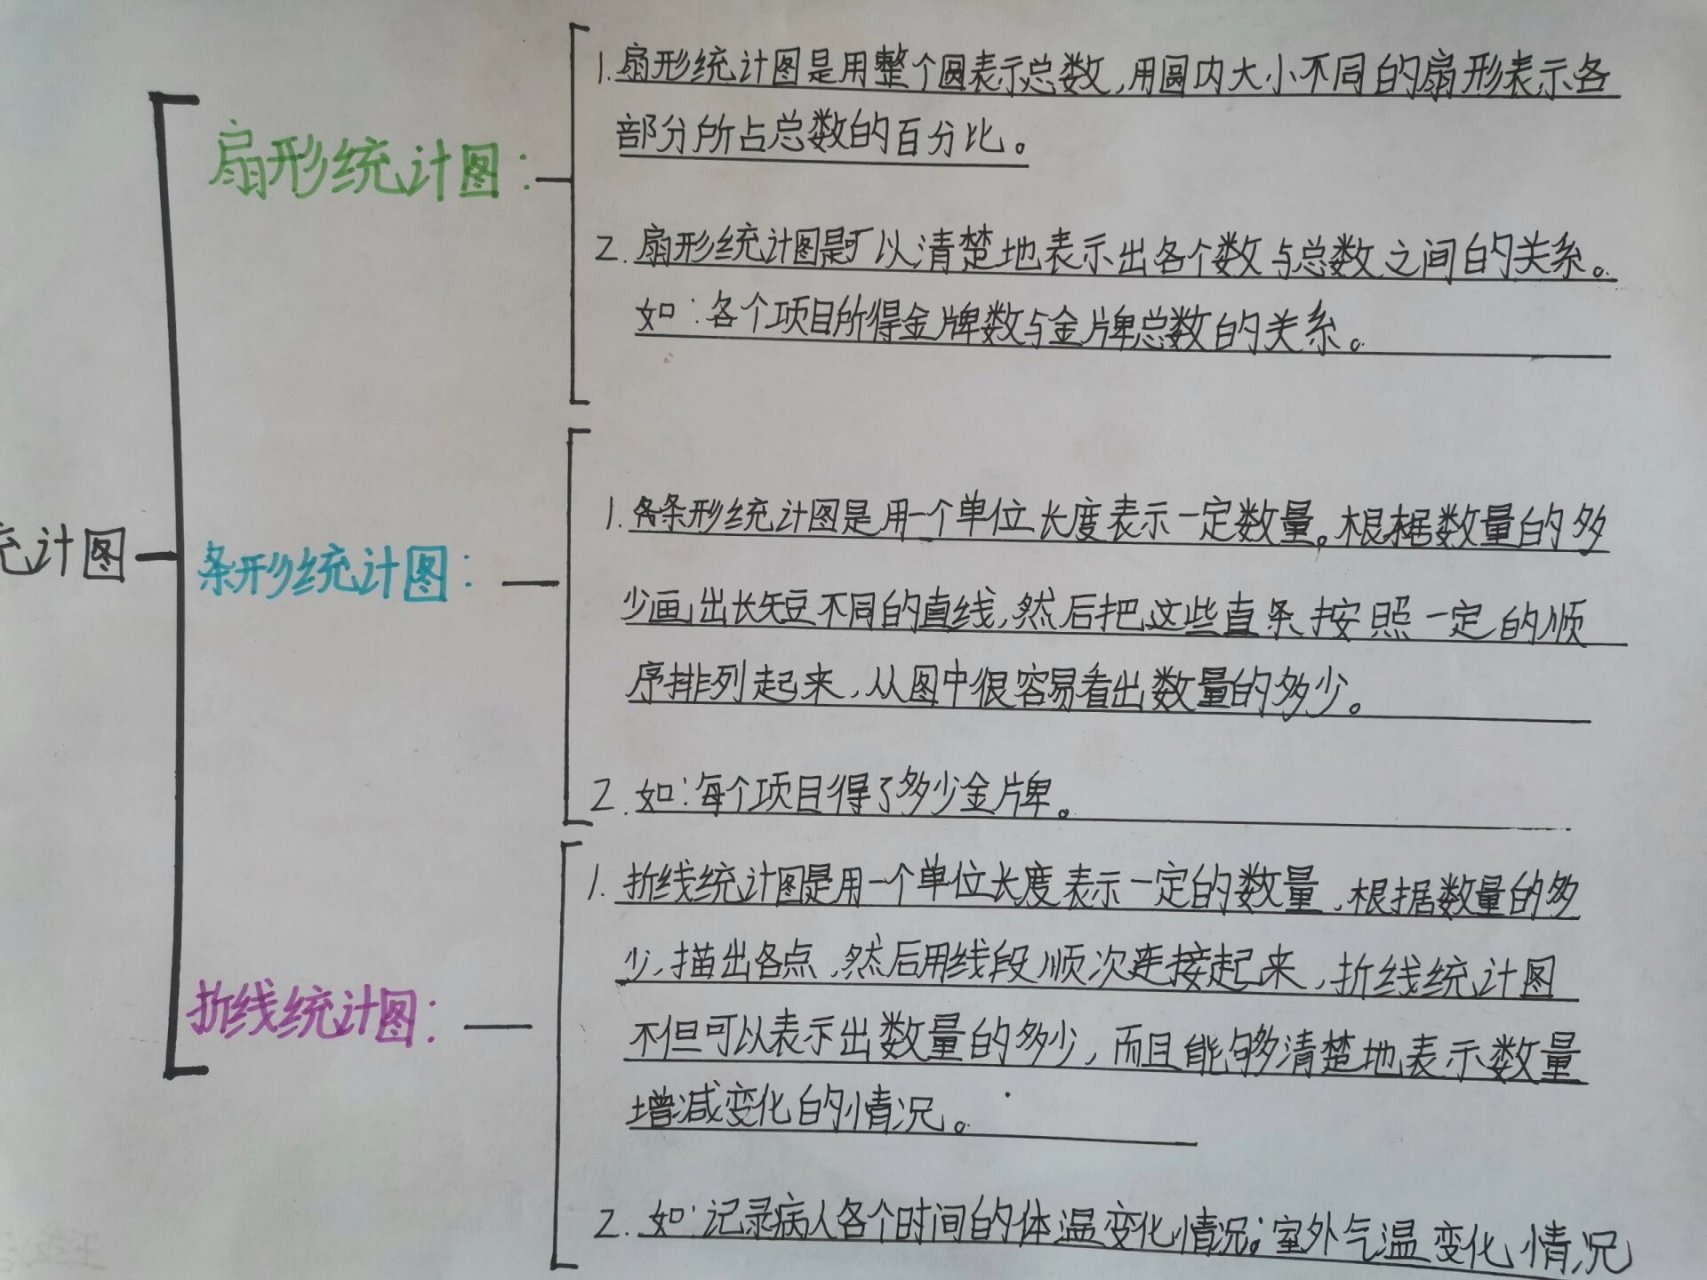 统计图
扇形统计图：
1.扇形统计图是用整个圆表示总数,用圆内大小不同的扇形表示各
部分所占总数的百分比。
2.扇形统计图是可以清楚地表示出各个数与总数之间的关系。
如：各个项目所得金牌数与金牌总数的关系。
条形统计图：
1.条形统计图是用一个单位长度表示一定数量。根据数量的多
少画出长短不同的直线,然后把这些直条按照一定的顺
序排列起来,从图中很容易看出数量的多少。
2.如：每个项目得了多少金牌。
折线统计图：
1.折线统计图是用一个单位长度表示一定的数量,根据数量的多
少,描出各点,然后用线段顺次连接起来,折线统计图
不但可以表示出数量的多少,而且能够清楚地表示数量
增减变化的情况。
2.如：记录病人各个时间的体温变化情况；室外气温变化情况